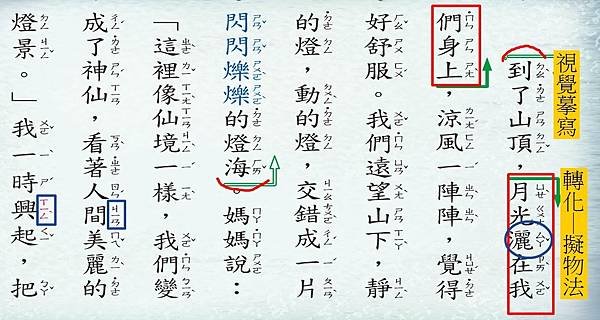 視覺摹寫
轉化—擬物法
到了山頂，月光灑在我
們身上，涼風一陣陣，覺得
好舒服。我們遠望山下，靜
的燈，動的燈，交錯成一片
閃閃爍爍的燈海。媽媽說：
「這裡像仙境一樣，我們變
成了神仙，看著人間美麗的
燈景。」我一時興起，把